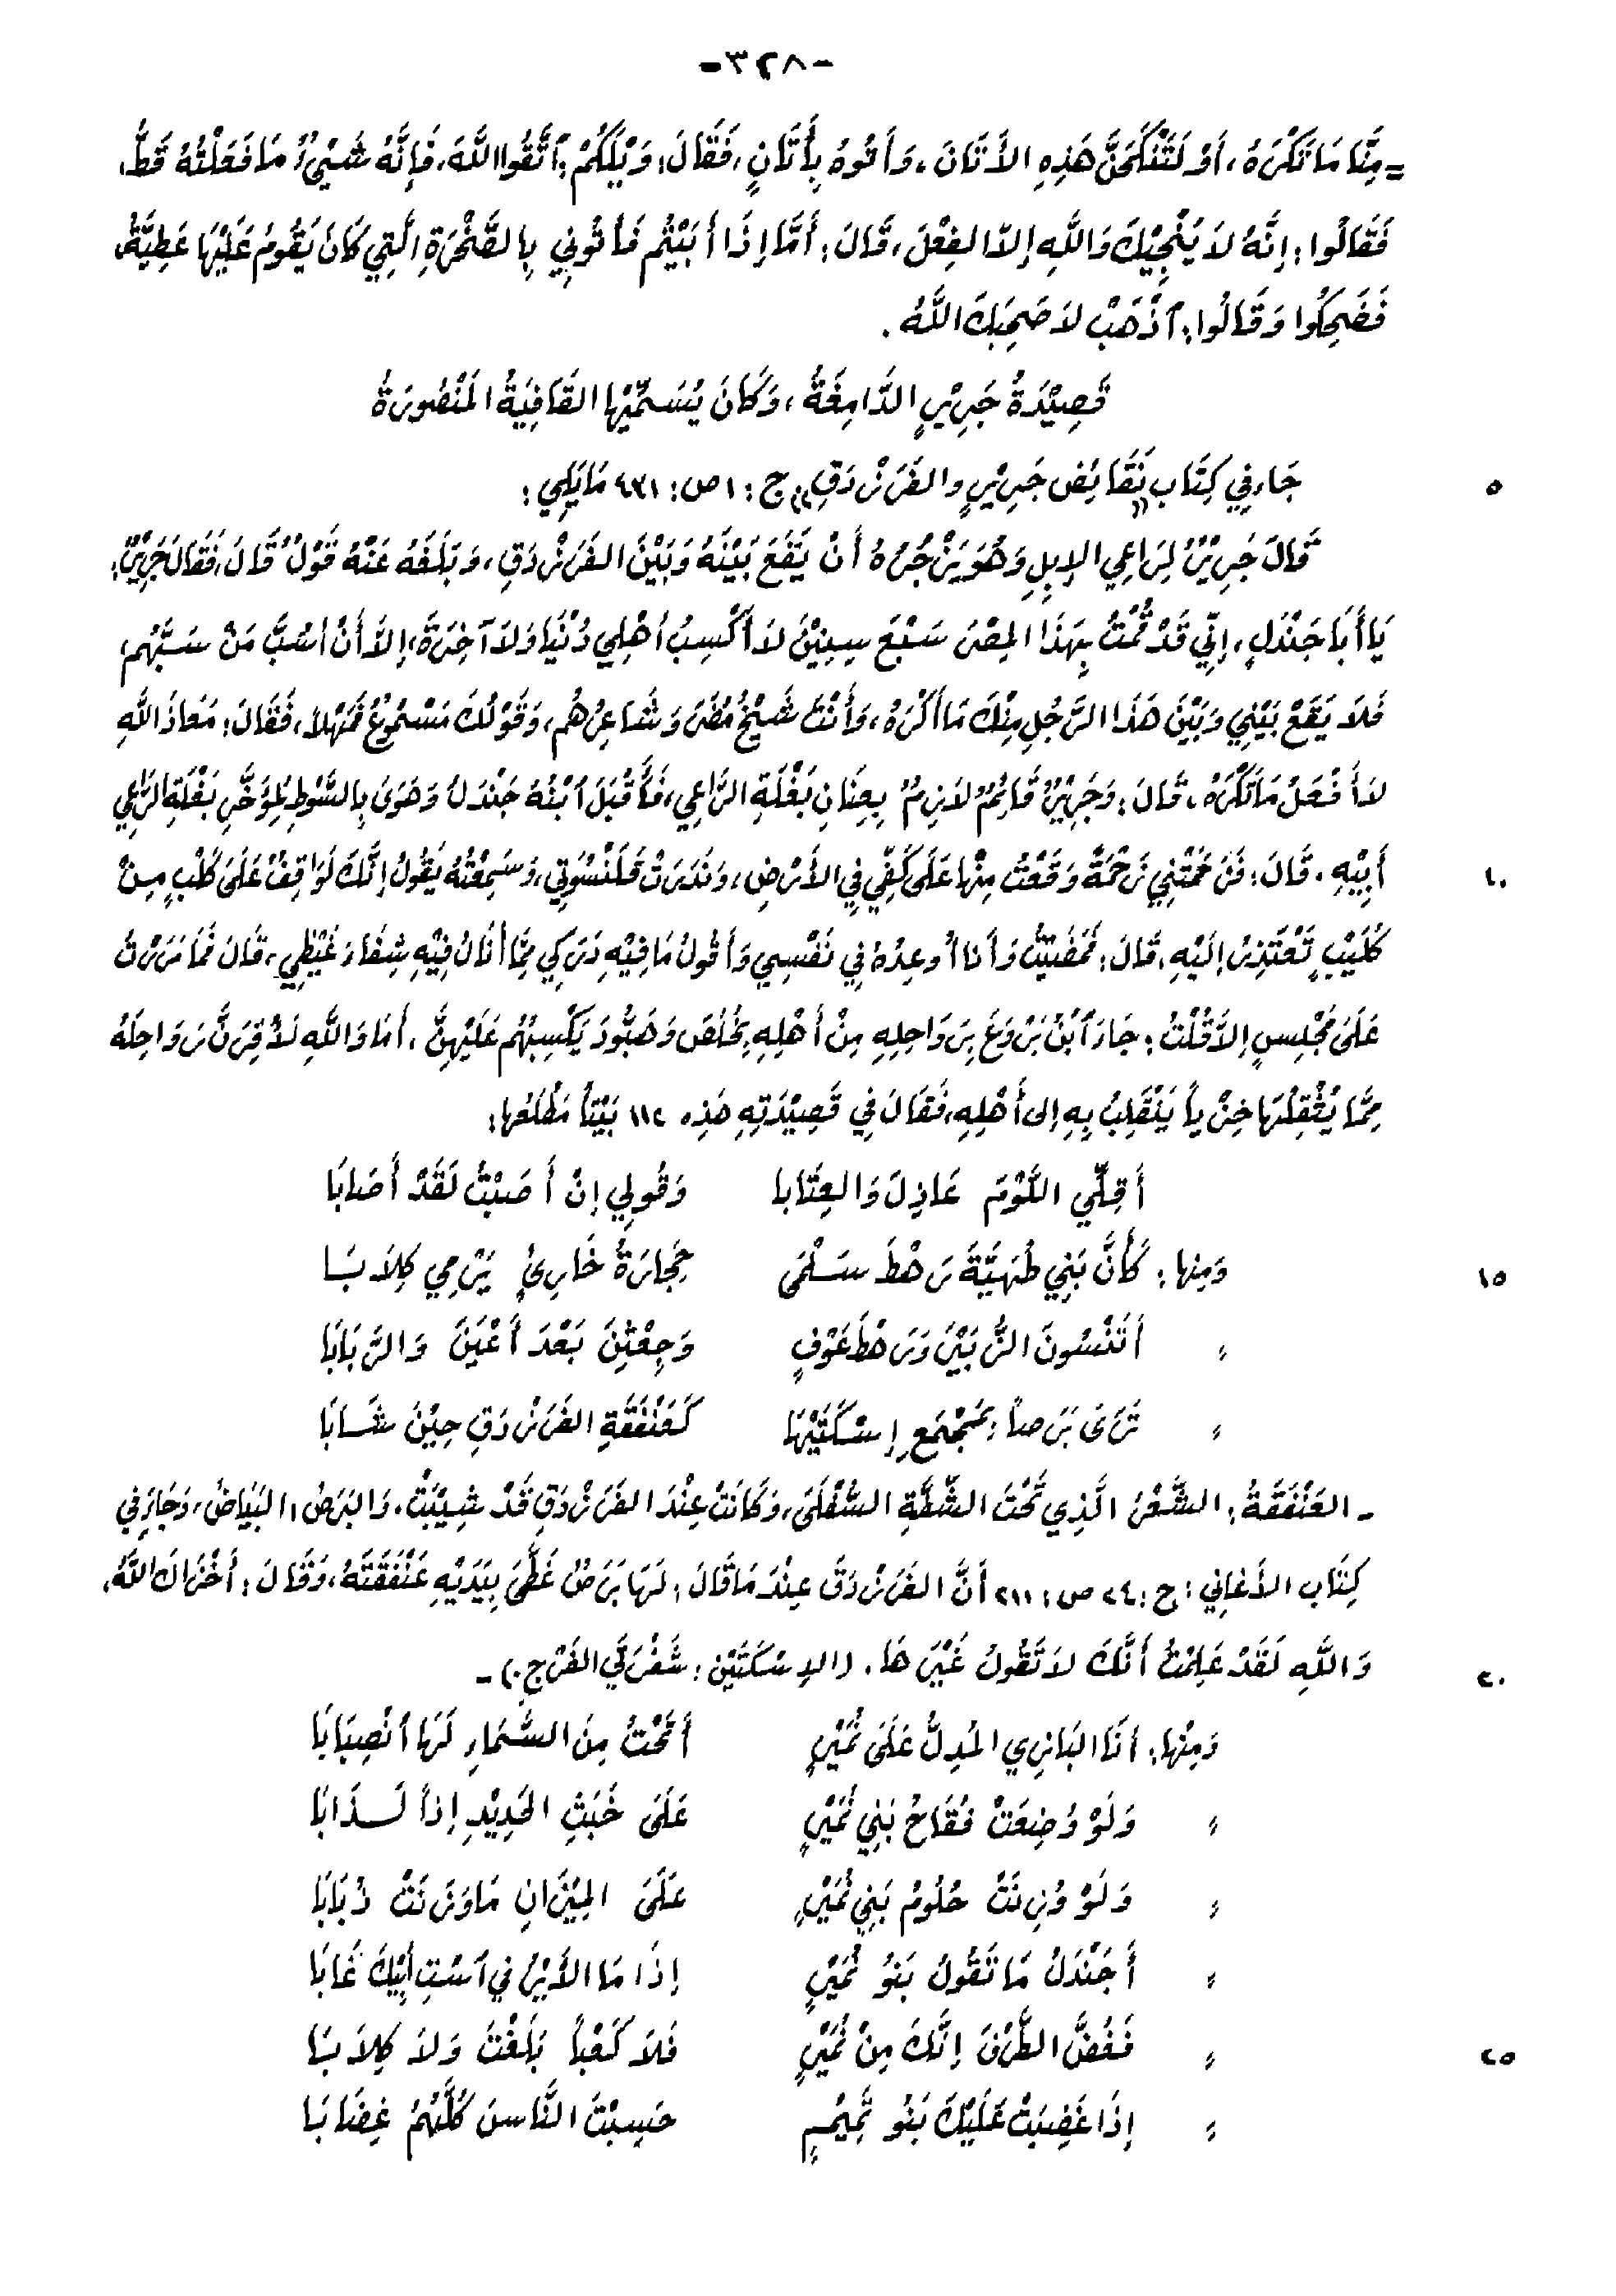 -٣٢٨-
= مِنَّا مَا تَكْرَهُ، أَوْ لَتَنْكَحَنَّ هَذِهِ الأَتَانَ، وَأَتُوهُ بِأَتَانٍ، فَقَالَ: وَيْلَكُمْ: ٱتَّقُوا اللَّهَ، فَإِنَّهُ شَيْءٌ مَا فَعَلْتُهُ قَطُّ،
فَقَالُوا: إِنَّهُ لاَ يُنْجِيْكَ وَاللَّهِ إِلاّ الفِعْلَ، قَالَ: أَمَّا إِذَا أَبَيْتُم فَأْتُونِي بِالصَّخْرَةِ الَّتِي كَانَ يَقُومُ عَلَيْهَا عَطِيَّةُ،
فَضَحِكُوا وَقَالُوا: ٱذْهَبْ لاَ صَحِبَكَ اللَّهُ.
قَصِيْدَةُ جَرِيْرٍ الدَّامِغَةُ، وَكَانَ يُسَمِّيْهَا القَافِيَةُ المَنْصُورَةُ
٥ جَاء فِي كِتَابِ «نَقَائِض جَرِيْرٍ والفَرَزْدَقِ» ج: ١ ص: ٤٣١ مَا يَلِي:
قَالَ جَرِيْرٌ لِرَاعِي الإِبِلِ وَهُوَ يَزْجُرُهُ أَنْ يَقَعَ بَيْنَهُ وَبَيْنَ الفَرَزْدَقِ، وَبَلَغَهُ عَنْهُ قَوْلٌ قَالَ، فَقَالَ جَرِيْرٌ:
يَا أَبَا جَنْدَلٍ، إِنِّي قَدْ قُمْتُ بِهَذَا المِصْرِ سَبْعَ سِنِيْنَ لاَ أَكْسِبُ أَهْلِي دُنْيَا وَلاَ آخِرَةً، إِلاَّ أَنْ أَسُبَّ مَنْ سَبَّهُم،
فَلاَ يَقَعْ بَيْنِي وَبَيْنَ هَذَا الرَّجُلِ مِنْكَ مَا أَكْرَهُ، وَأَنْتَ شَيْخُ مُضَرَ وَشَاعِرُهُم، وَقَوْلُكَ مَسْمُوعٌ فَمَهْلاً، فَقَالَ: مَعَاذَ اللَّهِ
لاَ أَفْعَلُ مَا تَكْرَهُ، قَالَ: وَجَرِيْرٌ قَائِمٌ لاَزِمٌ بِعِنَانِ بَغْلَةِ الرَّاعِي، فَأَقْبَلَ ٱبْنُهُ جَنْدَلُ وَهَوَى بِالسَّوْطِ لِمُؤَخَّرِ بَغْلَةِ الرَّاعِي
١٠ أَبِيْهِ. قَالَ: فَزَحَمَتْنِي زَحْمَةً وَقَعْتُ مِنْهَا عَلَى كَفِّي فِي الأَرْضِ، وَنَدَرَتْ قَلَنْسُوَتِي، وَسَمِعْتُهُ يَقُولُ إِنَّكَ لَوَاقِفٌ عَلَى كَلْبٍ مِنْ
كُلَيْبٍ تَعْتَذِرُ إِلَيْهِ، قَالَ: فَمَضَيْتُ وَأَنَا أُوعِدُهُ فِي نَفْسِي وَأَقُولُ مَا فِيْهِ دَرَكِي مِمَّا أَنَالُ فِيْهِ شِفَاءَ غَيْظِي، قَالَ فَمَا مَرَرْتُ
عَلَى مَجْلِسٍ إِلاَّ قُلْتُ: جَاءَ ٱبْنُ بَرْوَعَ بِرَوَاحِلِهِ مِنْ أَهْلِهِ بِخُلُصَ وَهَبُّودَ يَكْسِبُهُم عَلَيْهِنَّ، أَمَا وَاللَّهِ لَأُقِرَنَّ رَوَاحِلَهُ
مِمَّا يُثْقِلُهَا خِزْياً يَنْقَلِبُ بِهِ إِلى أَهْلِهِ، فَقَالَ فِي قَصِيْدَتِهِ هَذِهِ ١١٢ بَيْتاً مَطْلَعُها:
أَقِلِّي اللَّوْمَ عَاذِلَ وَالعِتَابا    وَقُولِي إِنْ أَصَبْتُ لَقَدْ أَصَابَا
١٥ وَمِنها: كَأَنَّ بَنِي طُهَيَّةَ رَهْطَ سَلْمَى    حِجَارَةُ خَارِئٍ يَرْمِي كِلاَبَا
؛ أَتَنْسُونَ الزُّبَيْرَ وَرَهْطَ عَوْفٍ    وَجِعْثِنَ بَعْدَ أَعْيَنَ وَالرَّبَابَا
؛ تَرَى بَرَصاً بِمَجْمَعِ إِسْكَتَيْهَا    كَعَنْفَقَةِ الفَرَزْدَقِ حِيْنَ شَابَا
- العَنْفَقَةُ: الشَّعْرُ الَّذِي تَحْتَ الشَّفَةِ السُّفْلَى، وَكَانَتْ عِنْدَ الفَرَزْدَقِ قَدْ شِيْبَتْ. وَالبَرَصُ: البَيَاضُ، وَجَاءَ فِي
كِتَابِ الأَغانِي: ج: ٢٤ ص: ٢١١ أَنَّ الفَرَزْدَقَ عِنْدَ مَا قَالَ: لَهَا بَرَصٌ غَطَّى بِيَدَيْهِ عَنْفَقَتَهُ، وَقَالَ: أَخْزَاكَ اللَّهُ،
٢٠ وَاللَّهِ لَقَدْ عَلِمْتُ أَنَّكَ لاَ تَقُولُ غَيْرَهَا. (الإِسْكَتَيْنِ: شَفْرَتَي الفَرْجِ.) -
وَمِنْها: أَنَا البَازِي المُدِلُّ عَلَى نُمَيْرٍ    أُتِحْتُ مِنَ السَّمَاءِ لَهَا ٱنْصِبَابَا
؛ وَلَوْ وُضِعَتْ فُقَاحُ بَنِي نُمَيْرٍ    عَلَى خَبَثِ الحَدِيْدِ إِذاً لَذَابَا
؛ وَلَوْ وُزِنَتْ حُلُومُ بَنِي نُمَيْرٍ    عَلَى المِيْزَانِ مَا وَزَنَتْ ذُبَابَا
؛ أَجَنْدَلُ مَا تَقُولُ بَنُو نُمَيْرٍ    إِذَا مَا الأَيْرُ فِي ٱسْتِ أَبِيْكَ غَابَا
٢٥ ؛ فَغُضَّ الطَّرْفَ إِنَّكَ مِنْ نُمَيْرٍ    فَلاَ كَعْباً بَلَغْتَ وَلاَ كِلاَبَا
؛ إِذَا غَضِبَتْ عَلَيْكَ بَنُو تَمِيْمٍ    حَسِبْتَ النَّاسَ كُلَّهُمُ غِضَابَا